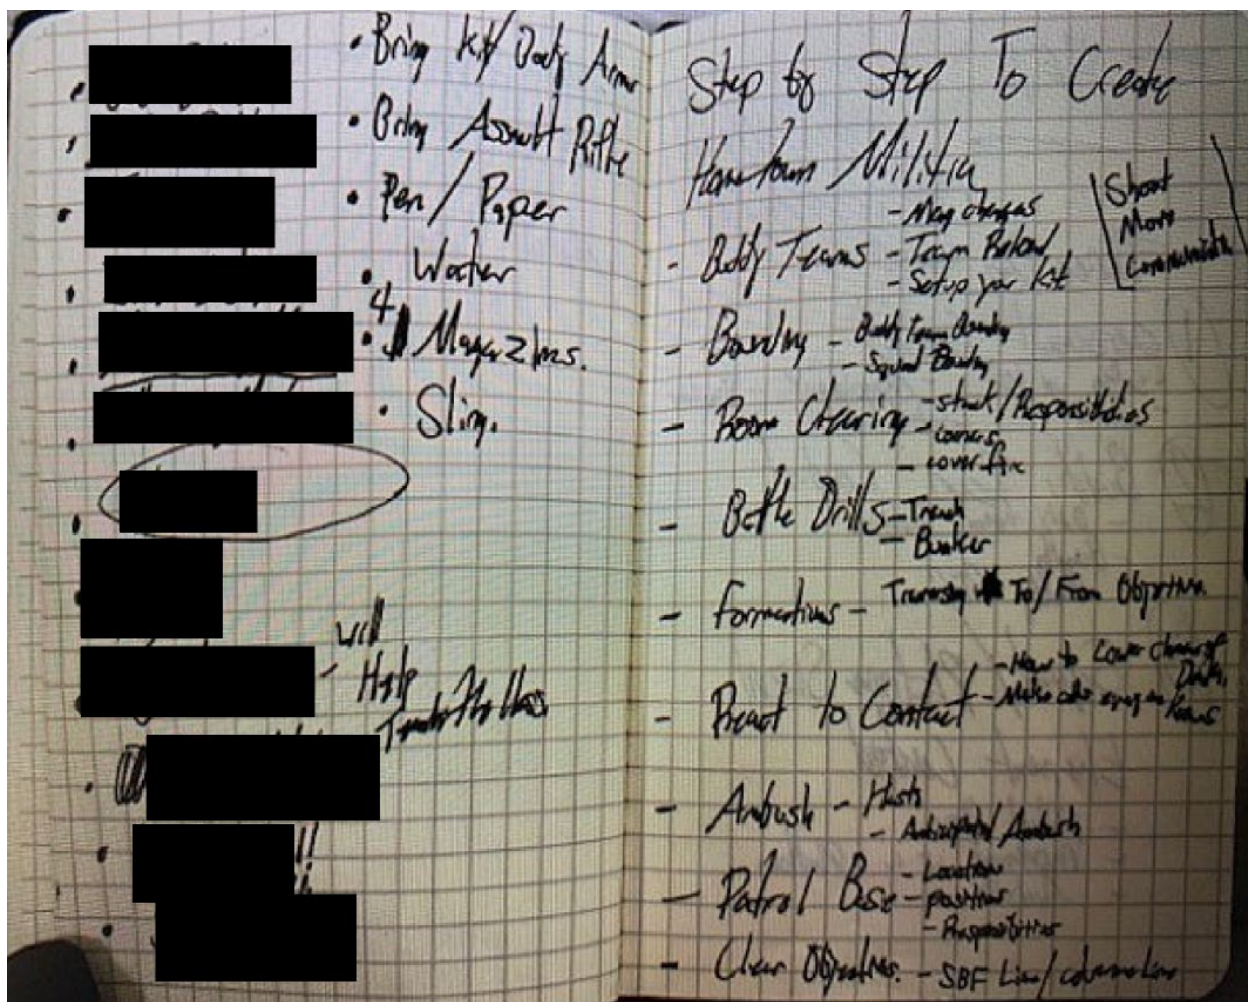 • Bring Kit/Body Armor
• Bring Assault Rifle
• Pen / Paper
• Water
• 4 Magazines.
• Sling.
will
- Help
Step by Step To Create
Hometown Militia
Shoot
Move
Communicate
- Mag changes
- Buddy Teams - Team Reload
- Setup your kit
- Bounding - Buddy Team Bounding
- Squad Bounding
- Room Clearing - stack/Responsibilities
- corners
- cover fire
- Battle Drills - Trench
- Bunker
- Formations - To/From Objective.
- React to Contact - How to Lower chance of Death.
- Make
- Ambush - Hasty
- Ambush
- Patrol Base - Location
- position
- Responsibilities
- Clear Objectives. - SBF Line/